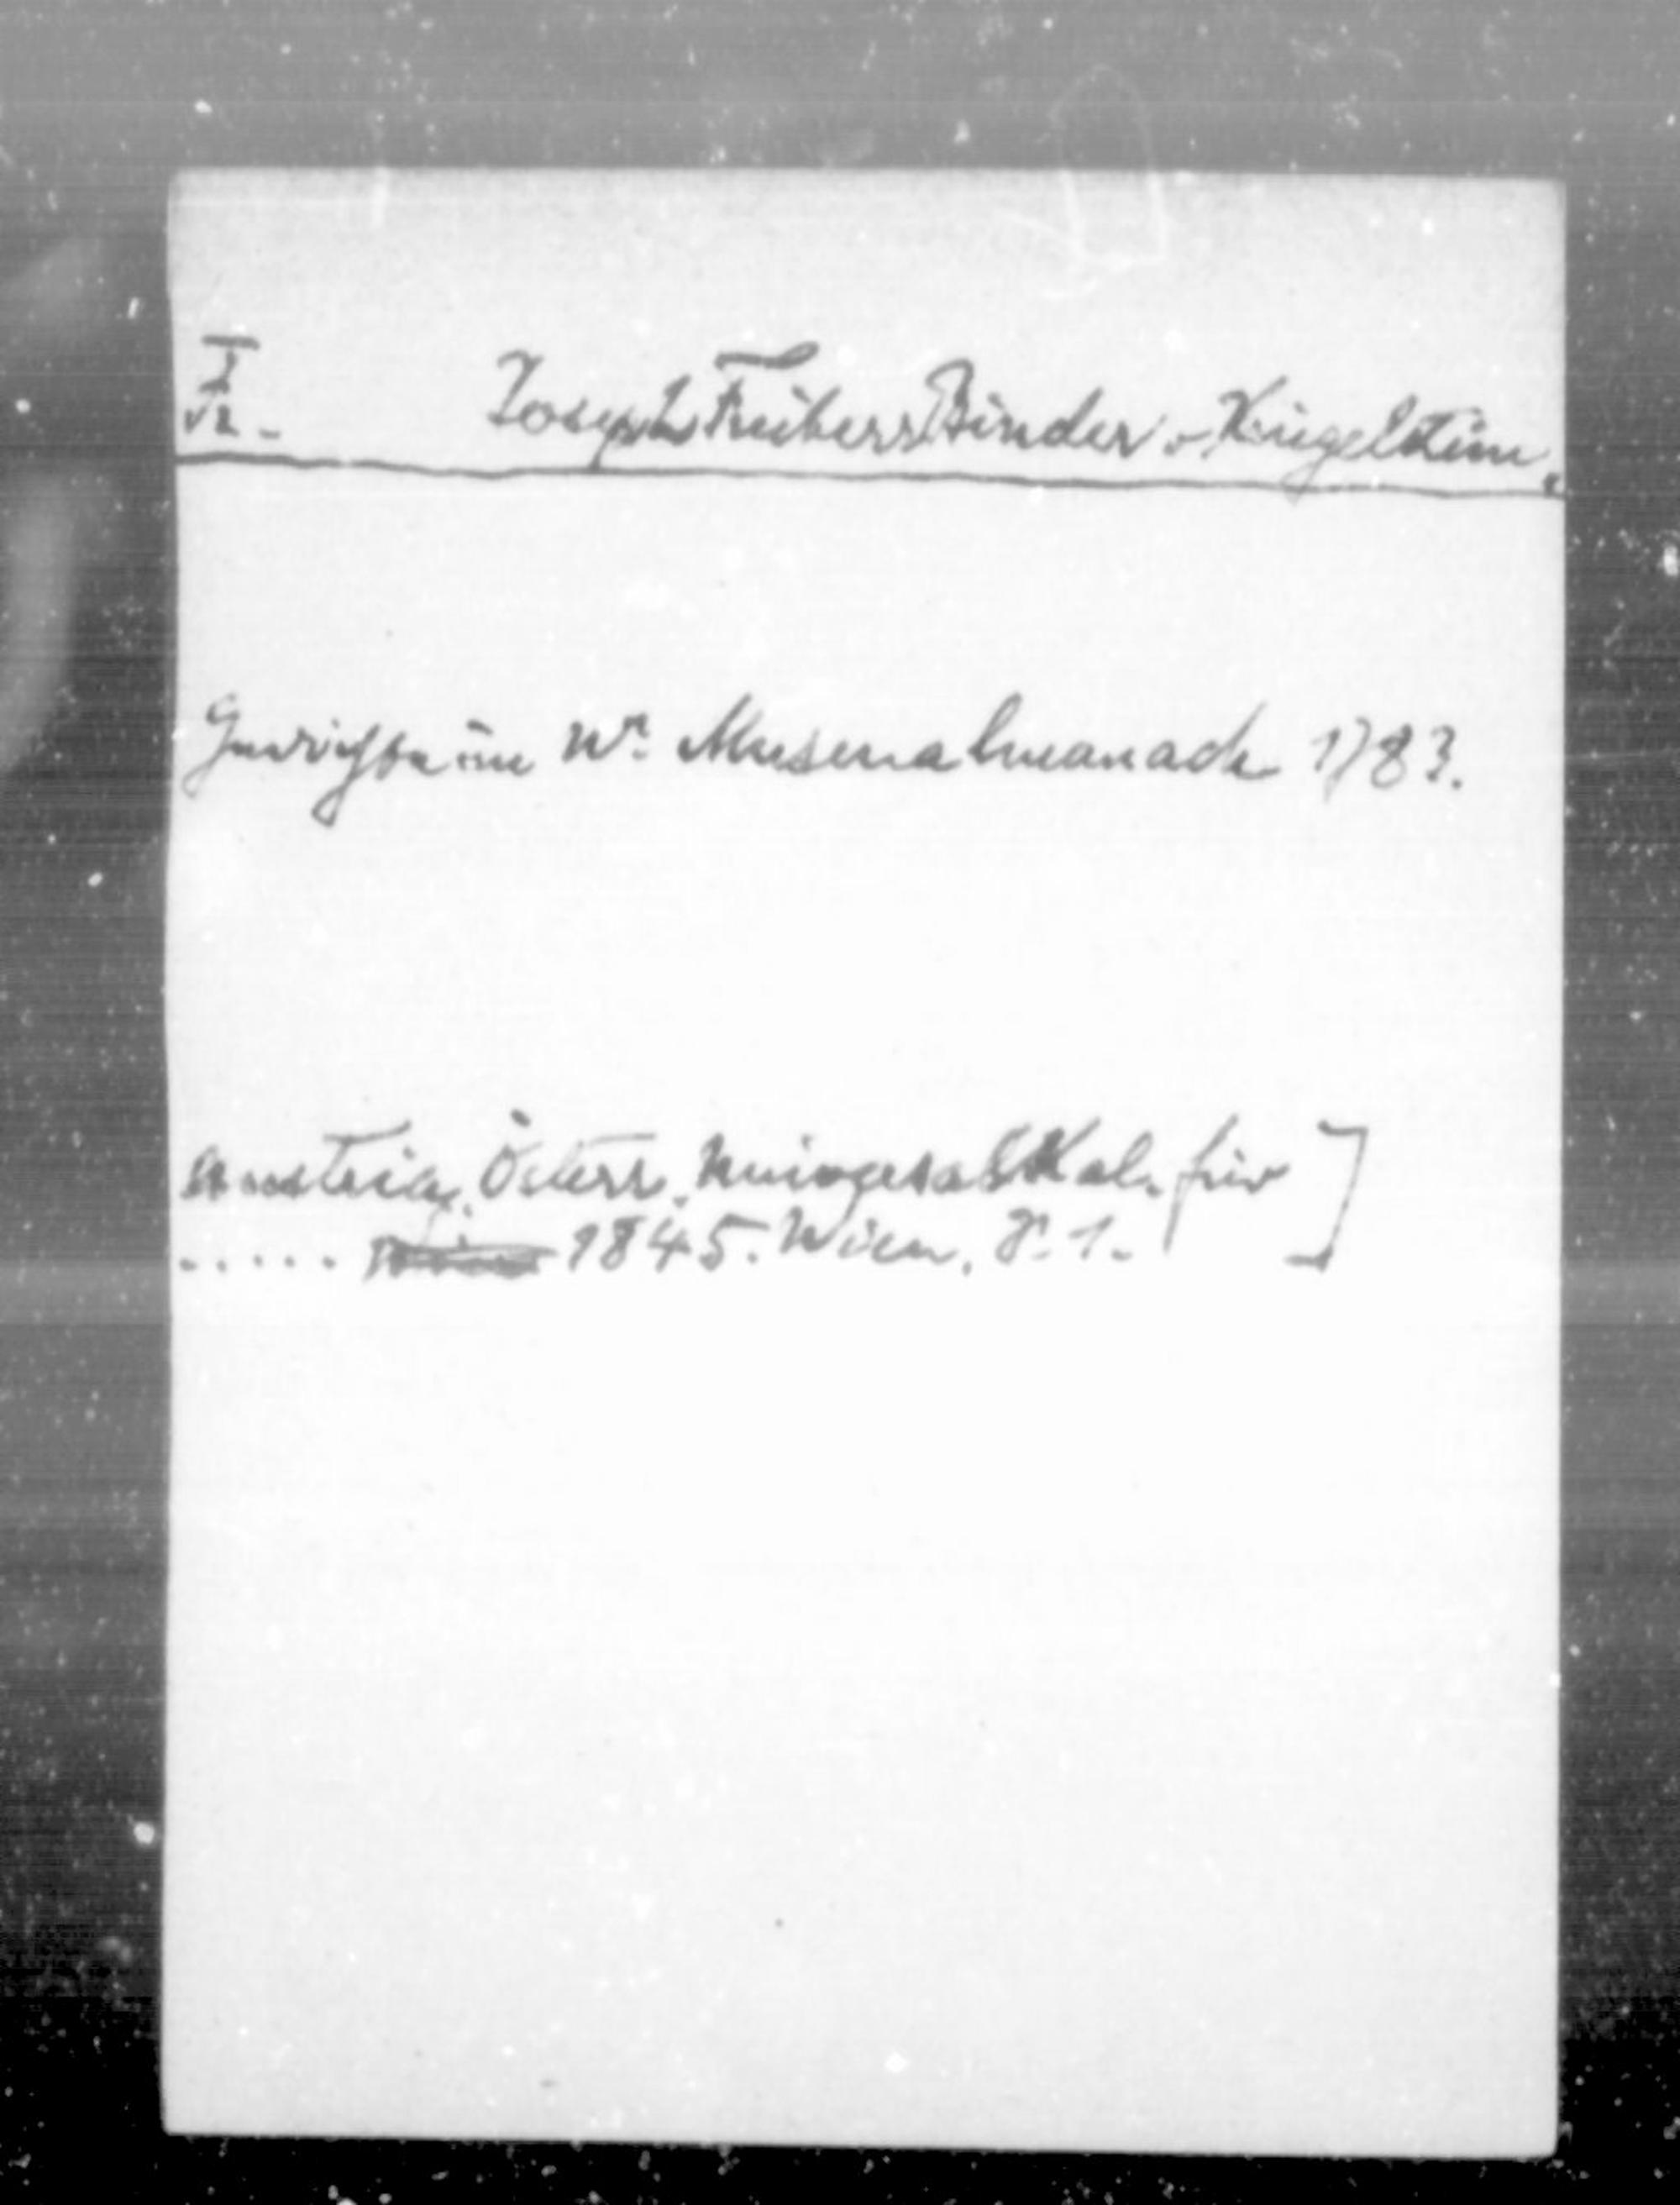 I
Joseph Freiherr Binder v. Kriegelstein.
Gedichte im Wr. Musenalmanach 1783.
Austria, Österr. Universal Kal. für ]
..... 1845. Wien, S. 1.